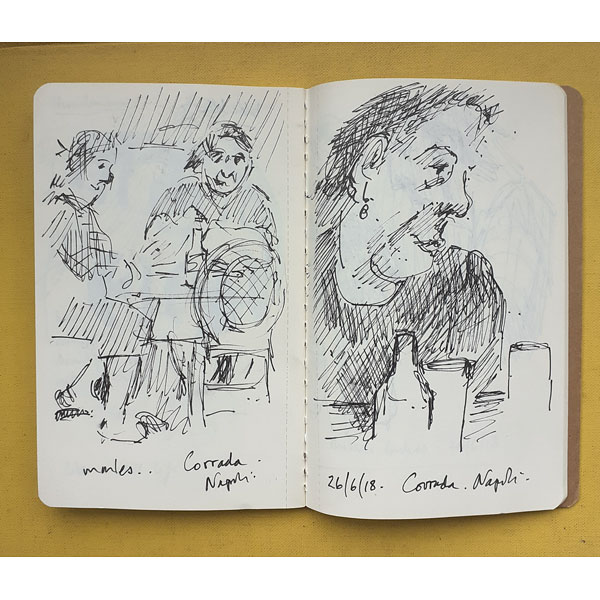 Corrada.
Napoli.
26/6/18. Corrada. Napoli.